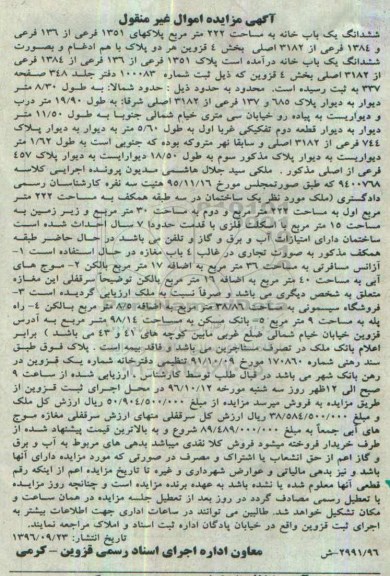 آگهی مزایده اموال غیر منقول
ششدانگ یک باب خانه به مساحت ۲۲۲ متر مربع پلاکهای ۱۳۵۱ فرعی از ۱۳۶ فرعی
و ۱۳۸۴ فرعی از ۳۱۸۲ اصلی بخش ۴ قزوین هر دو پلاک با هم ادغام و بصورت
ششدانگ یک باب خانه درآمده است پلاک ۱۳۵۱ فرعی از ۱۳۶ فرعی از ۱۳۸۴ فرعی
از ۳۱۸۲ اصلی بخش ۴ قزوین که ذیل ثبت شماره ۱۰۰۰۸۳ دفتر جلد ۳۴۸ صفحه
۳۳۷ به ثبت رسیده است. محدود به حدود ذیل : حدود شمالا: به طول ۸/۳۰ متر
دیوار به دیوار پلاک ۶۸۵ و ۱۳۷ فرعی از ۳۱۸۲ اصلی شرقا: به طول ۱۹/۹۰ متر درب
و دیواریست به پیاده رو خیابان سی متری خیام شمالی جنوبا به طول ۱۱/۵۰ متر
دیوار به دیوار قطعه دوم تفکیکی غربا اول به طول ۵/۶۰ متر به دیوار به دیوار پلاک
۷۴۴ فرعی از ۳۱۸۲ اصلی و سابقا نهر متروکه بوده که جنوبی است به طول ۱/۶۲ متر
دیواریست به دیوار پلاک مذکور سوم به طول ۱۸/۵۰ دیواریست به دیوار پلاک ۴۵۷
فرعی از اصلی مذکور . ملکی سید جلال هاشمی مدیون پرونده اجرایی کلاسه
۹۴۰۰۷۶۸ که طبق صورتمجلس مورخ ۹۵/۱۱/۱۶ هئیت سه نفره کارشناسان رسمی
دادگستری (ملک مورد نظر یک ساختمان در سه طبقه همکف به مساحت ۲۲۲ متر
مربع اول به مساحت ۲۲۲ متر مربع و دوم به مساحت ۳۰ متر مربع و زیر زمین به
مساحت ۱۵ متر مربع با اسکلت فلزی با قدمت حدودا ۷ سال احداث شده است
ساختمان دارای امتیازات آب و برق و گاز و تلفن می باشد در حال حاضر طبقه
همکف مذکور به صورت تجاری در غالب ۵ باب مغازه در حال استفاده است ۱-
آژانس مسافرتی به مساحت ۳۶ متر مربع به اضافه ۱۷ متر مربع بالکن ۲- موج های
آبی به مساحت ۴۰ متر مربع به اضافه ۱۶ متر مربع بالکن توضیحاً سرقفلی این مغازه
متعلق به شخص دیگری می باشد و صرفاً نسبت به ملک ارزیابی گردیده است ۳-
فروشگاه سیمونی به مساحت ۳۸/۸۶ متر مربع به اضافه ۸/۵ متر مربع بالکن ۴- راه
پله به مساحت ۹ متر مربع ۵- بانک مسکن به مساحت ۹۸/۱۴ متر مربع به آدرس
قزوین خیابان خیام شمالی ضلع غربی مابین کوچه های ۴۱ و ۴۳ می باشد ) برابر
اعلام بانک ملک در تصرف مستاجرین می باشد و فاقد بیمه است . پلاک فوق طبق
سند رهنی شماره ۱۷۰۸۶۰ مورخ ۹۱/۷/۰۹ تنظیمی دفترخانه شماره یک قزوین در
رهن بانک شهر می باشد در قبال طلب توسط کارشناس ارزیابی شده از ساعت ۹
صبح الی ۱۲ظهر روز سه شنبه مورخه ۹۶/۱۰/۱۲ در محل اجرای ثبت قزوین از
طریق مزایده به فروش میرسد مزایده از مبلغ ۵۰/۹۰۴/۵۰۰/۰۰۰ ریال ارزش کل ملک
و مبلغ ۳۸/۵۸۴/۵۰۰/۰۰۰ ریال ارزش کل سرقفلی منهای ارزش سرقفلی مغازه موج
های آبی جمعاً به مبلغ ۸۹/۴۸۹/۰۰۰/۰۰۰ شروع و به بالاترین قیمت پیشنهاد شده از
طرف خریدار فروخته میشود فروش کلا نقدی میباشد بدهی های مربوط به آب و برق
و گاز اعم از حق انشعاب یا اشتراک و مصرف در صورتی که مورد مزایده دارای آنها
باشد و نیز بدهی مالیاتی و عوارض شهرداری و غیره تا تاریخ مزایده اعم از اینکه رقم
قطعی آنها معلوم شده یا نشده باشد به عهده برنده مزایده است و چنانچه روز مزایده
با تعطیل رسمی مصادف گردد در روز بعد از تعطیل جلسه مزایده در همان ساعت و
مکان تشکیل خواهد شد. طالبین می توانند در ساعات اداری جهت اطلاعات بیشتر به
اجرای ثبت قزوین واقع در خیابان پادگان اداره ثبت اسناد و املاک مراجعه نمایند.
تاریخ انتشار: ۱۳۹۶/۰۹/۲۳
معاون اداره اجرای اسناد رسمی قزوین - کرمی
۲۹۹۱/۹۶-ش